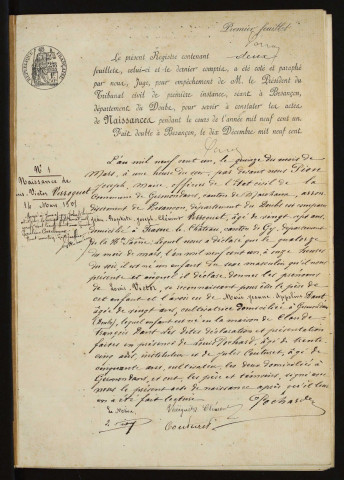 Premier feuillet
Le présent Registre contenant deux
feuillets, celui-ci et le dernier compris, a été coté et paraphé
par nous, Juge, pour empêchement de M. le Président du
Tribunal civil de première instance, séant à Besançon,
département du Doubs, pour servir à constater les actes
de Naissances pendant le cours de l'année mil neuf cent un.
Fait double à Besançon, le dix Décembre mil neuf cent.
N° 1
Naissance de
Victor
14 Mars 1901
L'an mil neuf cent un, le quinze du mois de
Mars, à une heure du soir, par devant nous Pierre
Joseph Marie officier de l'état civil de la
Commune de Germondans, canton de Marchaux, arron.
dissement de Besançon, département du Doubs est comparu
Joseph Clément âgé de vingt
domicilié à Fresne le Château, canton de Gy, département
de la Hte Saône, lequel nous a déclaré que le quatorze
du mois de mars, l'an mil neuf cent un à onze heures
du soir, il est né un enfant du sexe masculin qu'il nous
présente et auquel il déclare donner les prénoms
de Louis Victor, se reconnaissant pour être le père de
cet enfant et l'avoir eu de Marie Jeanne
âgée de vingt ans, cultivatrice domiciliée à Germondans
(Doubs), lequel enfant est né en la maison de Claude
François Les dites déclaration et présentation
faites en présence de Louis Rochard, âgé de trente
cinq ans, instituteur et de Jules Couturet, âgé de
cinquante ans, cultivateur, les deux domiciliés à
Germondans, et ont, les père et témoins, signé avec
nous le présent acte de naissance après qu'il leur
en a été fait lecture
Le Maire Clément Rochard
Couturet